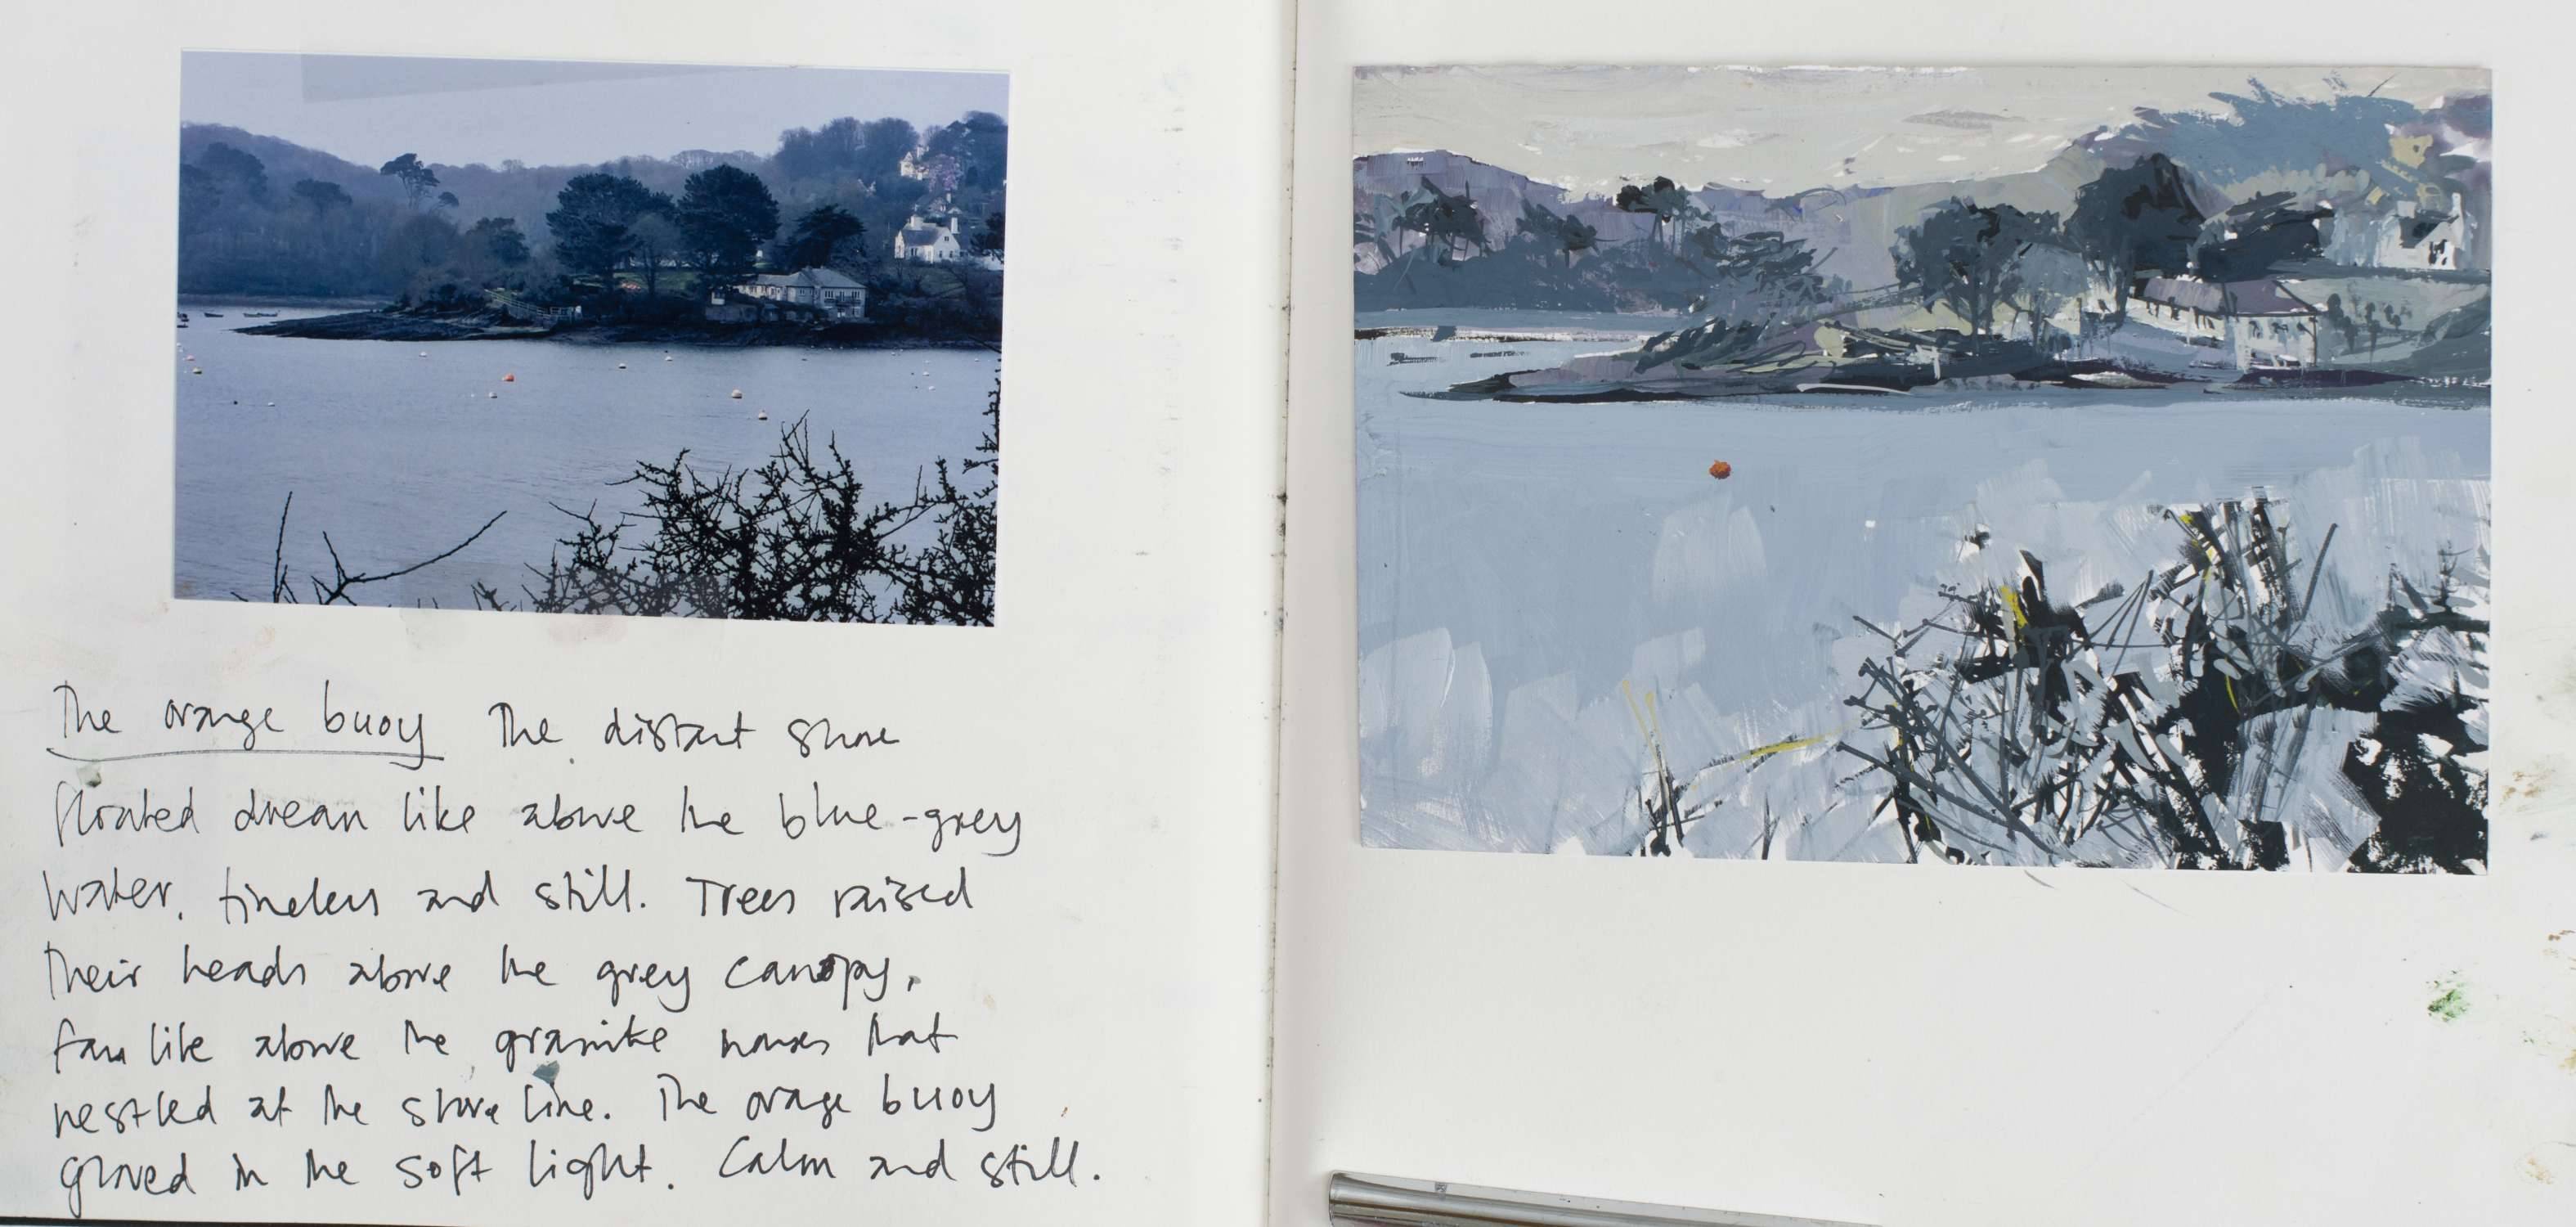 The orange buoy The distant shore
floated dream like above the blue-grey
water, timeless and still. Trees raised
their heads above the grey canopy,
fan like above the granite houses that
nestled at the shore line. The orange buoy
glowed in the soft light. Calm and still.